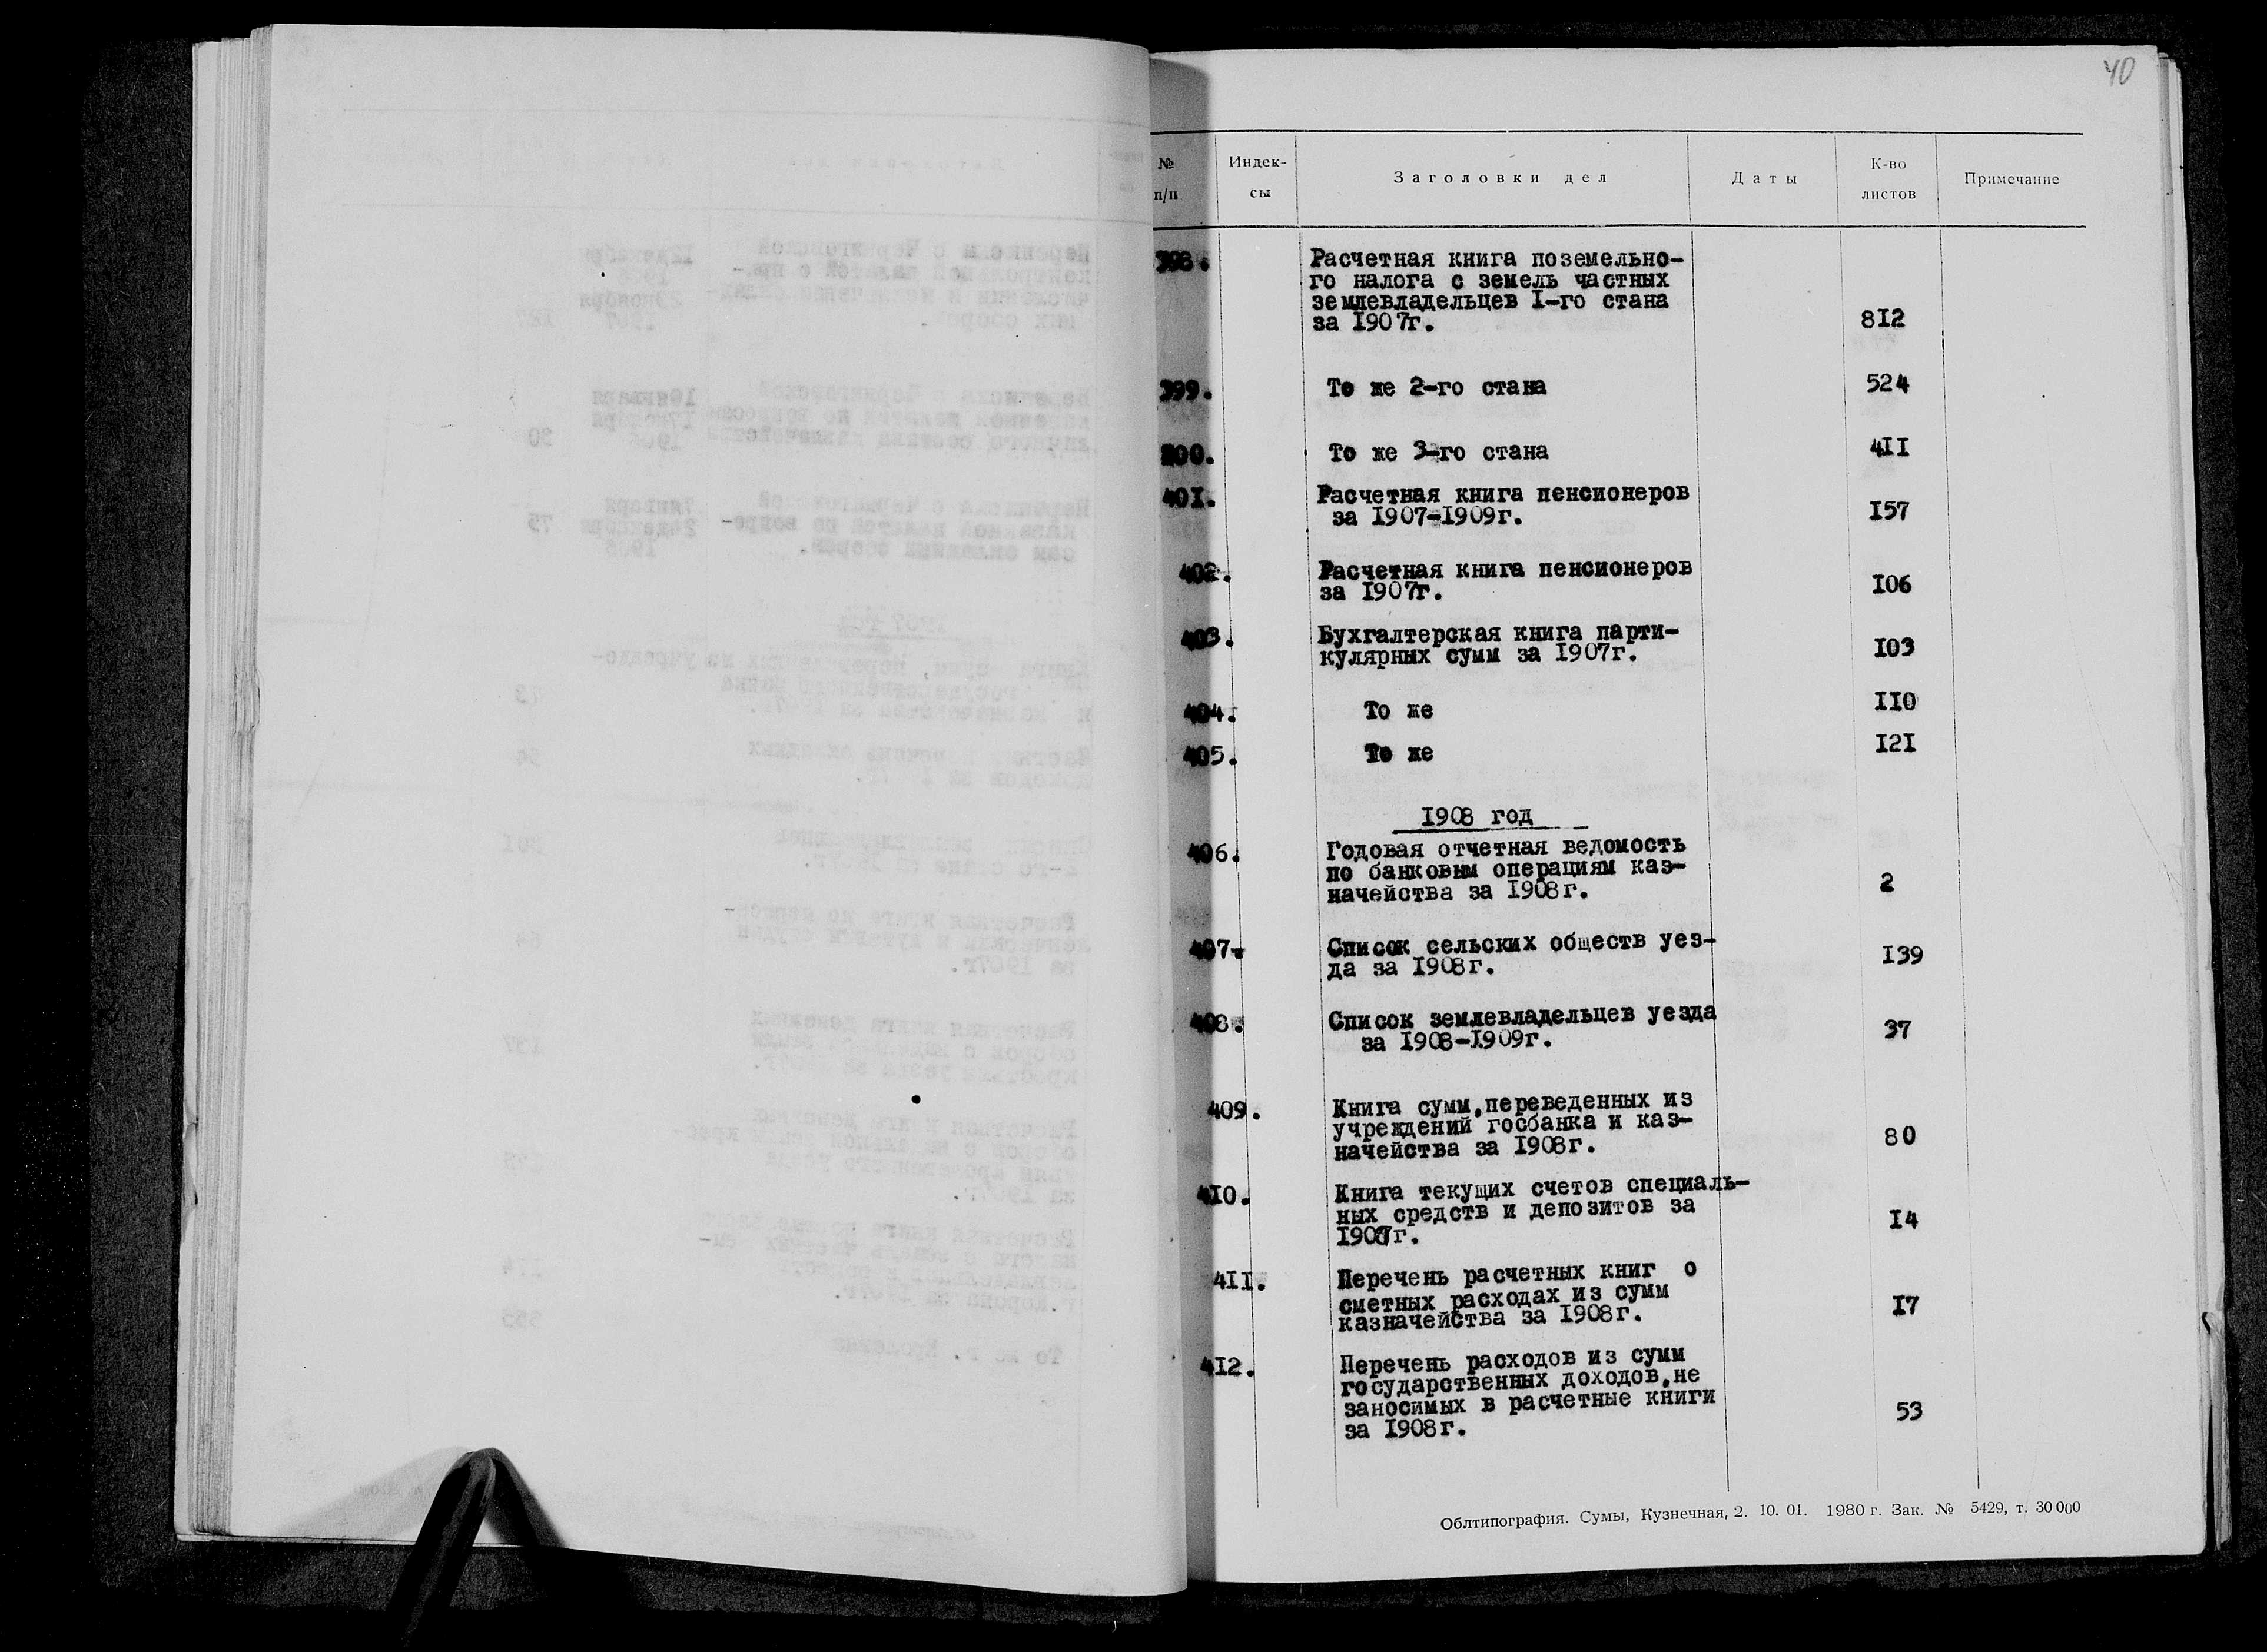 40
№ п/п Индек-сы Заголовки дел Даты К-во листов Примечание
398. Расчетная книга поземельно-
го налога с земель частных
землевладельцев I-го стана
за I907г. 8I2
399. То же 2-го стана 524
То же 3-го стана 4II
40I. Расчетная книга пенсионеров
за I907-I909г. I57
402. Расчетная книга пенсионеров
за I907г. I06
403. Бухгалтерская книга парти-
кулярных сумм за I907г. I03
404. То же II0
405. То же I2I
I908 год
406. Годовая отчетная ведомость
по банковым операциям каз-
начейства за I908г. 2
407. Список сельских обществ уез-
да за I908г. I39
408. Список землевладельцев уезда
за I908-I909г. 37
409. Книга сумм,переведенных из
учреждений госбанка и каз-
начейства за I908г. 80
4I0. Книга текущих счетов специаль-
ных средств и депозитов за
I4
4II. Перечень расчетных книг о
сметных расходах из сумм
казначейства за I908г. I7
4I2. Перечень расходов из сумм
государственных доходов,не
заносимых в расчетные книги
за I908г. 53
Облтипография. Сумы, Кузнечная, 2. 10. 01. 1980 г. Зак. № 5429, т. 30 000